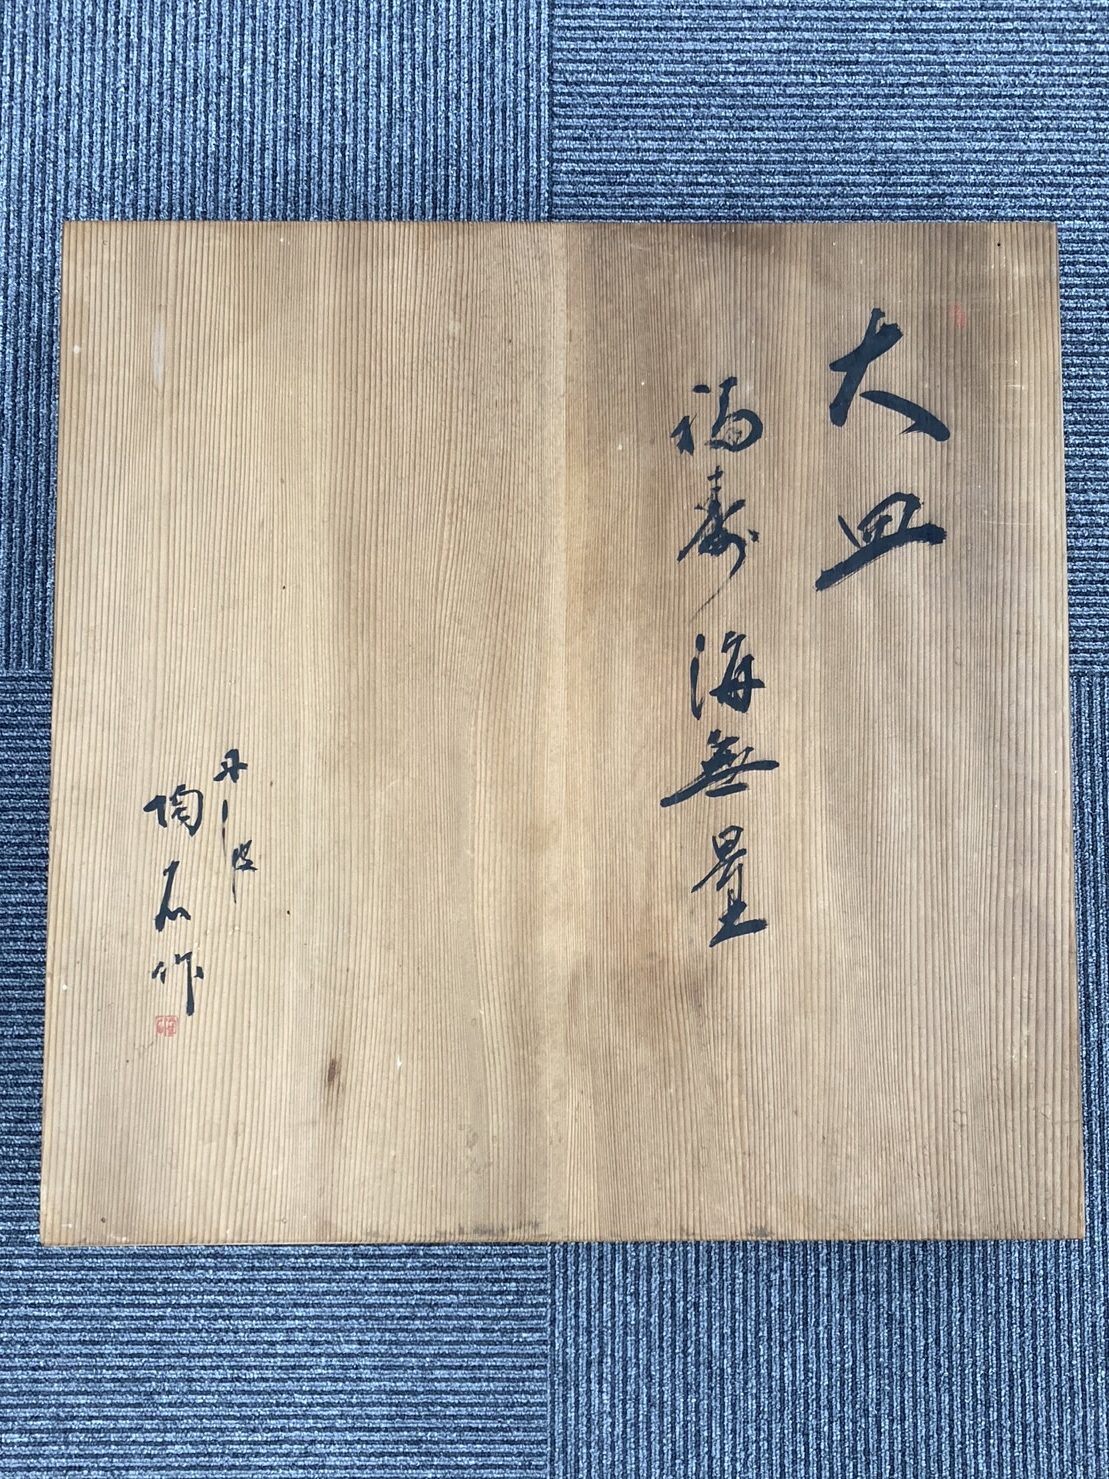 大皿
福寿海無量
丹波
陶石作